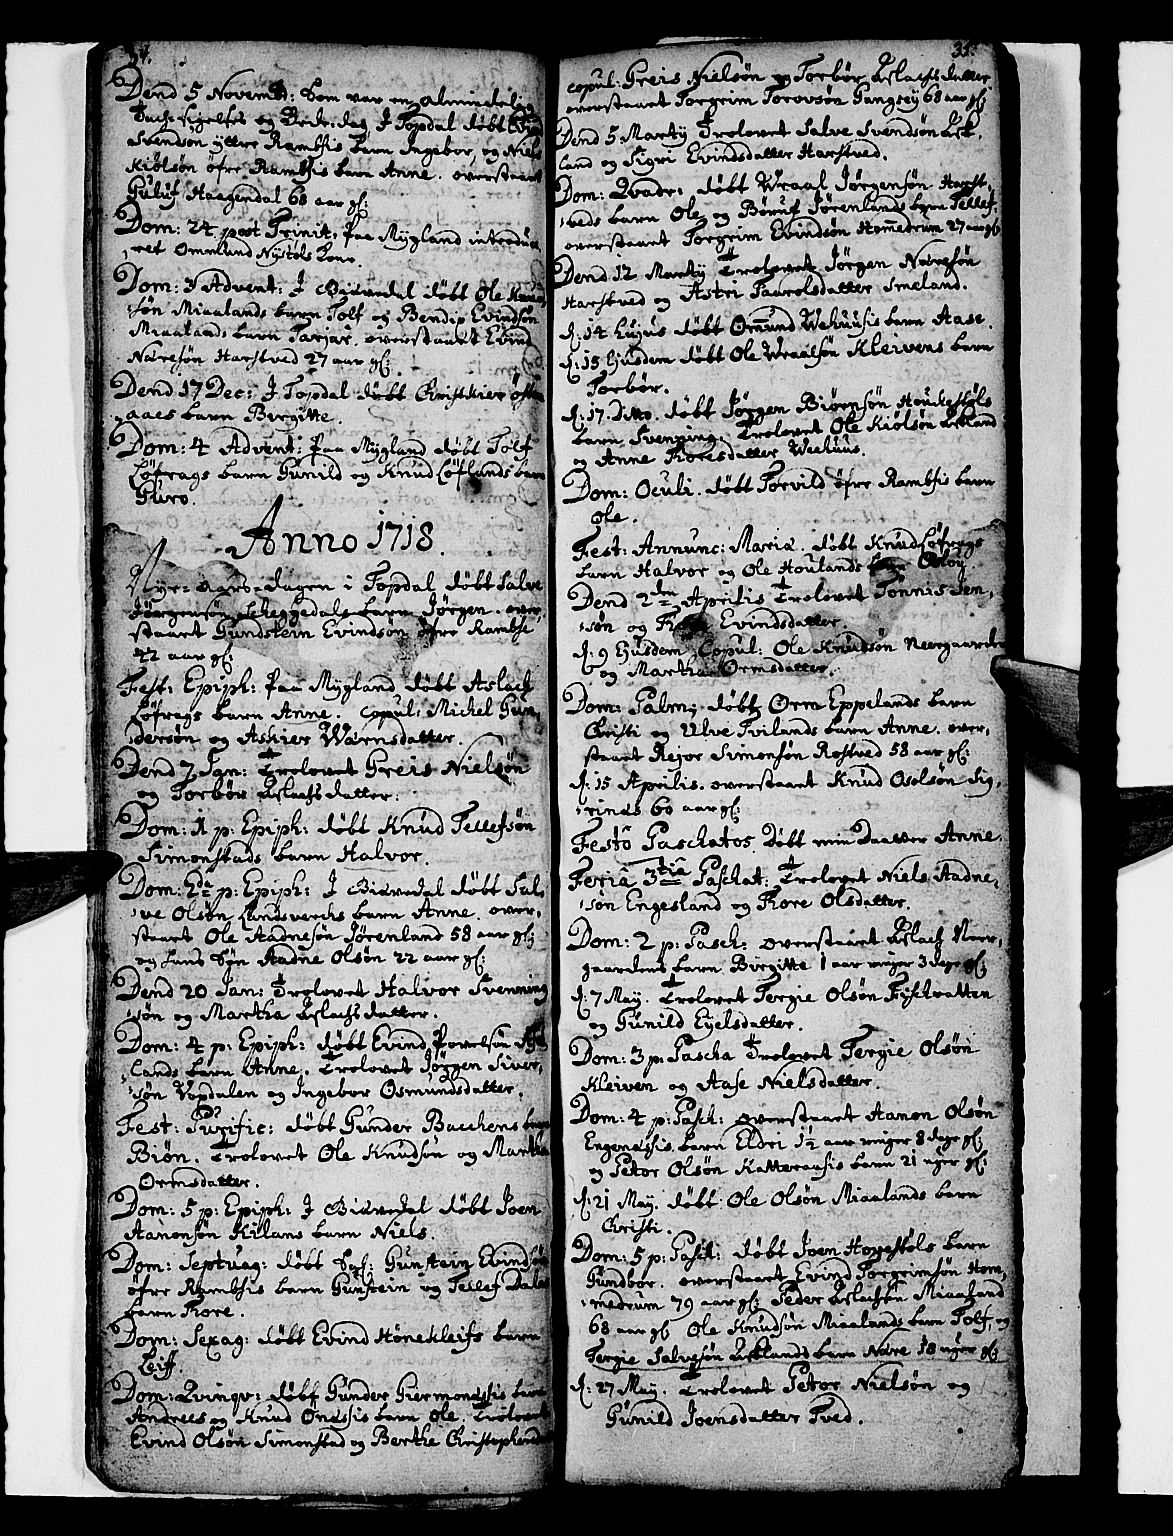 34.
Dend 5 Novemb: som var en almindelig
Tach-sigelses og Bede-dag, I Topdal døbt Evind
Svendsøn yttre Ramsis barn Ingebor, og Niels
Kiølsøn øfre Ramsis barn Anne. overstaaet
Guluf Haagendal 68 aar gl:
Dom: 24 post Trinit: Paa Mygland introdu-
ceret Ommund Nystøls Kone.
Dom: 3 Advent: I Giøvedal døbt Ole Knud-
søn Miaalands barn Tolf og Bendix Evindsøn
Miaalands barn Tarjar. overstaaet Evind
Næresøn Harstved 27 aar gl:
Dend 17 Dec: I Topdal døbt Christkier østen
aaes barn Birgitte.
Dom: 4 Advent: Paa Mygland døbt Tolf
Løfrags barn Gunild og Knud Løflands barn
Guro.
Anno 1718.
Nyt-aars-dagen i Topdal døbt Salve
Jørgensøn Skeggedals barn Jørgen. over-
staaet Gundstein Evindsøn øfre Ramse
22 aar gl:
Fest: Epiph: Paa Mygland døbt Aslach
Løfrags barn Anne. Copul: Michel Gun-
dersøn og Askier Wærnsdatter.
Dend 7 Jan: Trolovet Greis Nielsøn
og Torbør Aslachsdatter.
Dom: 1 p: Epiph: døbt Knud Tellefsøn
Simonstads barn Halvor.
Dom: 2da p: Epiph: I Giøvedal døbt Sal-
ve Olsøn Landsverchs barn Anne. over-
staaet Ole Aadnesøn Jørenland 58 aar gl:
og hans Søn Aadne Olsøn 22 aar gl:
Dend 20 Jan: Trolovet Halvor Svenning
søn og Martha Aslachsdatter.
Dom: 4 p: Epiph: døbt Evind Povelsøn
lands barn Anne. Trolovet Jørgen Siver-
søn Vopdalen og Ingebor Osmundsdatter.
Fest: Purific: døbt Gunder Bacchens barn
Biøn. Trolovet Ole Knudsøn og Martha
Ormsdatter.
Dom: 5 p: Epiph: I Giøvedal døbt Joen
Aanonsøn Kilans barn Niels.
Dom: Septuag: døbt Sal: Gunstein Evindsøn
øfre Ramsis barn Gunstein og Tellef Dales
barn Tore.
Dom: Sexag: døbt Evind Hønekleifs barn
Leiff.
Dom: Qvinqv: døbt Gunder Giermondsis barn
Andrees og Knud Ønesis barn Ole. Trolovet
Evind Olsøn Simonstad og Berthe Christophersd
35.
copul: Greis Nielsøn og Torbør Aslachsdatter
overstaaet Torgrim Torovsøn Gangsey 68 aar gl:
Dend 5 Martij Trolovet Salve Svendsøn Ask-
land og Sigri Evindsdatter Harstved.
Dom: Qvadr: døbt Wraal Jørgensøn Harst-
veds barn Ole og Børuf Jørenlands barn Tellef
overstaaet Torgrim Evindsøn Hommedrum 27 aar gl
Dend 12 Martij Trolovet Jørgen Næresøn
Harstved og Astri Taarolsdatter Smeland.
d: 14 hujus døbt Ormund Wehuusis barn Aase.
d: 15 Ejusdem døbt Ole Wraalsøn Kleivens barn
Torbør.
d: 17. Ditto. døbt Jørgen Biørnsøn Houkestøls
barn Svenning. Trolovet Ole Kiølsøn Askland
og Anne Toresdatter Weehuus.
Dom: Oculi. døbt Torvild øfre Ramsis barn
Ole.
Fest: Annunc: Mariæ. døbt Knud Løfrags
barn Halvor og Ole Houlands barn Osloy.
Dend 2den Aprilis Trolovet Tønnis Jen-
søn og Evindsdatter.
d: 9 Ejusdem Copul: Ole Knudsøn Neergaarden
og Martha Ormsdatter.
Dom: Palm: døbt Orm Eppelands barn
Christi og Ulve Tvilands barn Anne. over-
staaet Rejor Simonsøn Rostved 58 aar gl:
d: 15 Aprilis. overstaaet Knud Osolson Sig-
rinas 60 aar gl:
Festô Paschatos. Døbt min Daatter Anne.
Feriâ 3tiâ Paschat: Trolovet Niels Aadne-
søn Engesland og Tore Olsdatter.
Dom: 2 p: Pasch: overstaaet Aslach Neer-
gaardens barn Birgitte 1 aar ringer 3 dage gl:
d: 7 May. Trolovet Tergie Olsøn Fischvatten
og Gunild Eyelsdatter.
Dom: 3 p: Pascha Trolovet Tergie Olsøn
Kleiven og Aase Nielsdatter.
Dom: 4 p: Pasch: overstaaet Aanon Olsøn
Engenæssis barn Eldri 1½ aar ringer 8 dage gl:
og Petor Olsøn Katteraasis barn 21 uger gl:
d: 21 May. døbt Ole Olsøn Miaalands barn
Christi.
Dom: 5 p: Pasch: døbt Joen Hovestøls barn
Gundbor. overstaaet Evind Torgrimsøn Hom-
medrum 79 aar gl: Peder Aslachsøn Miaaland
68 aar gl Ole Knudsøn Miaalands barn Tolf, og
Tergie Salvesøn Asklands barn Nære 18 uger gl:
d: 27 May. Trolovet Petor Nielsøn og
Gunild Joensdatter Tved.